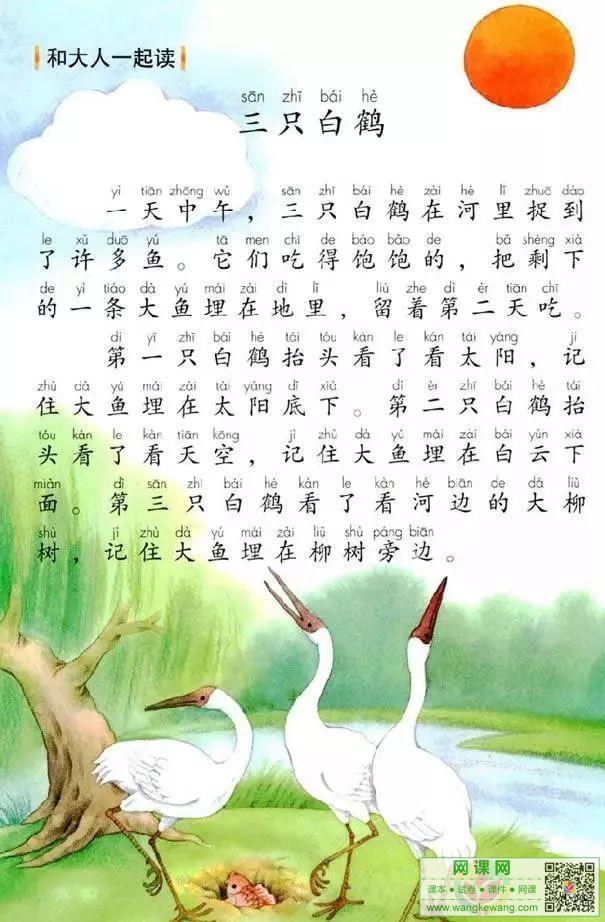 和大人一起读
sān zhī bái hè
三只白鹤
yì tiān zhōng wǔ sān zhī bái hè zài hé lǐ zhuō dào
一天中午，三只白鹤在河里捉到
le xǔ duō yú tā men chī de bǎo bǎo de bǎ shèng xià
了许多鱼。它们吃得饱饱的，把剩下
de yì tiáo dà yú mái zài dì lǐ liú zhe dì èr tiān chī
的一条大鱼埋在地里，留着第二天吃。
dì yī zhī bái hè tái tóu kàn le kàn tài yáng jì
第一只白鹤抬头看了看太阳，记
zhù dà yú mái zài tài yáng dǐ xià dì èr zhī bái hè tái
住大鱼埋在太阳底下。第二只白鹤抬
tóu kàn le kàn tiān kōng jì zhù dà yú mái zài bái yún xià
头看了看天空，记住大鱼埋在白云下
miàn dì sān zhī bái hè kàn le kàn hé biān de dà liǔ
面。第三只白鹤看了看河边的大柳
shù jì zhù dà yú mái zài liǔ shù páng biān
树，记住大鱼埋在柳树旁边。
网课网
课本·试卷·课件·网课
www.wangkewang.com